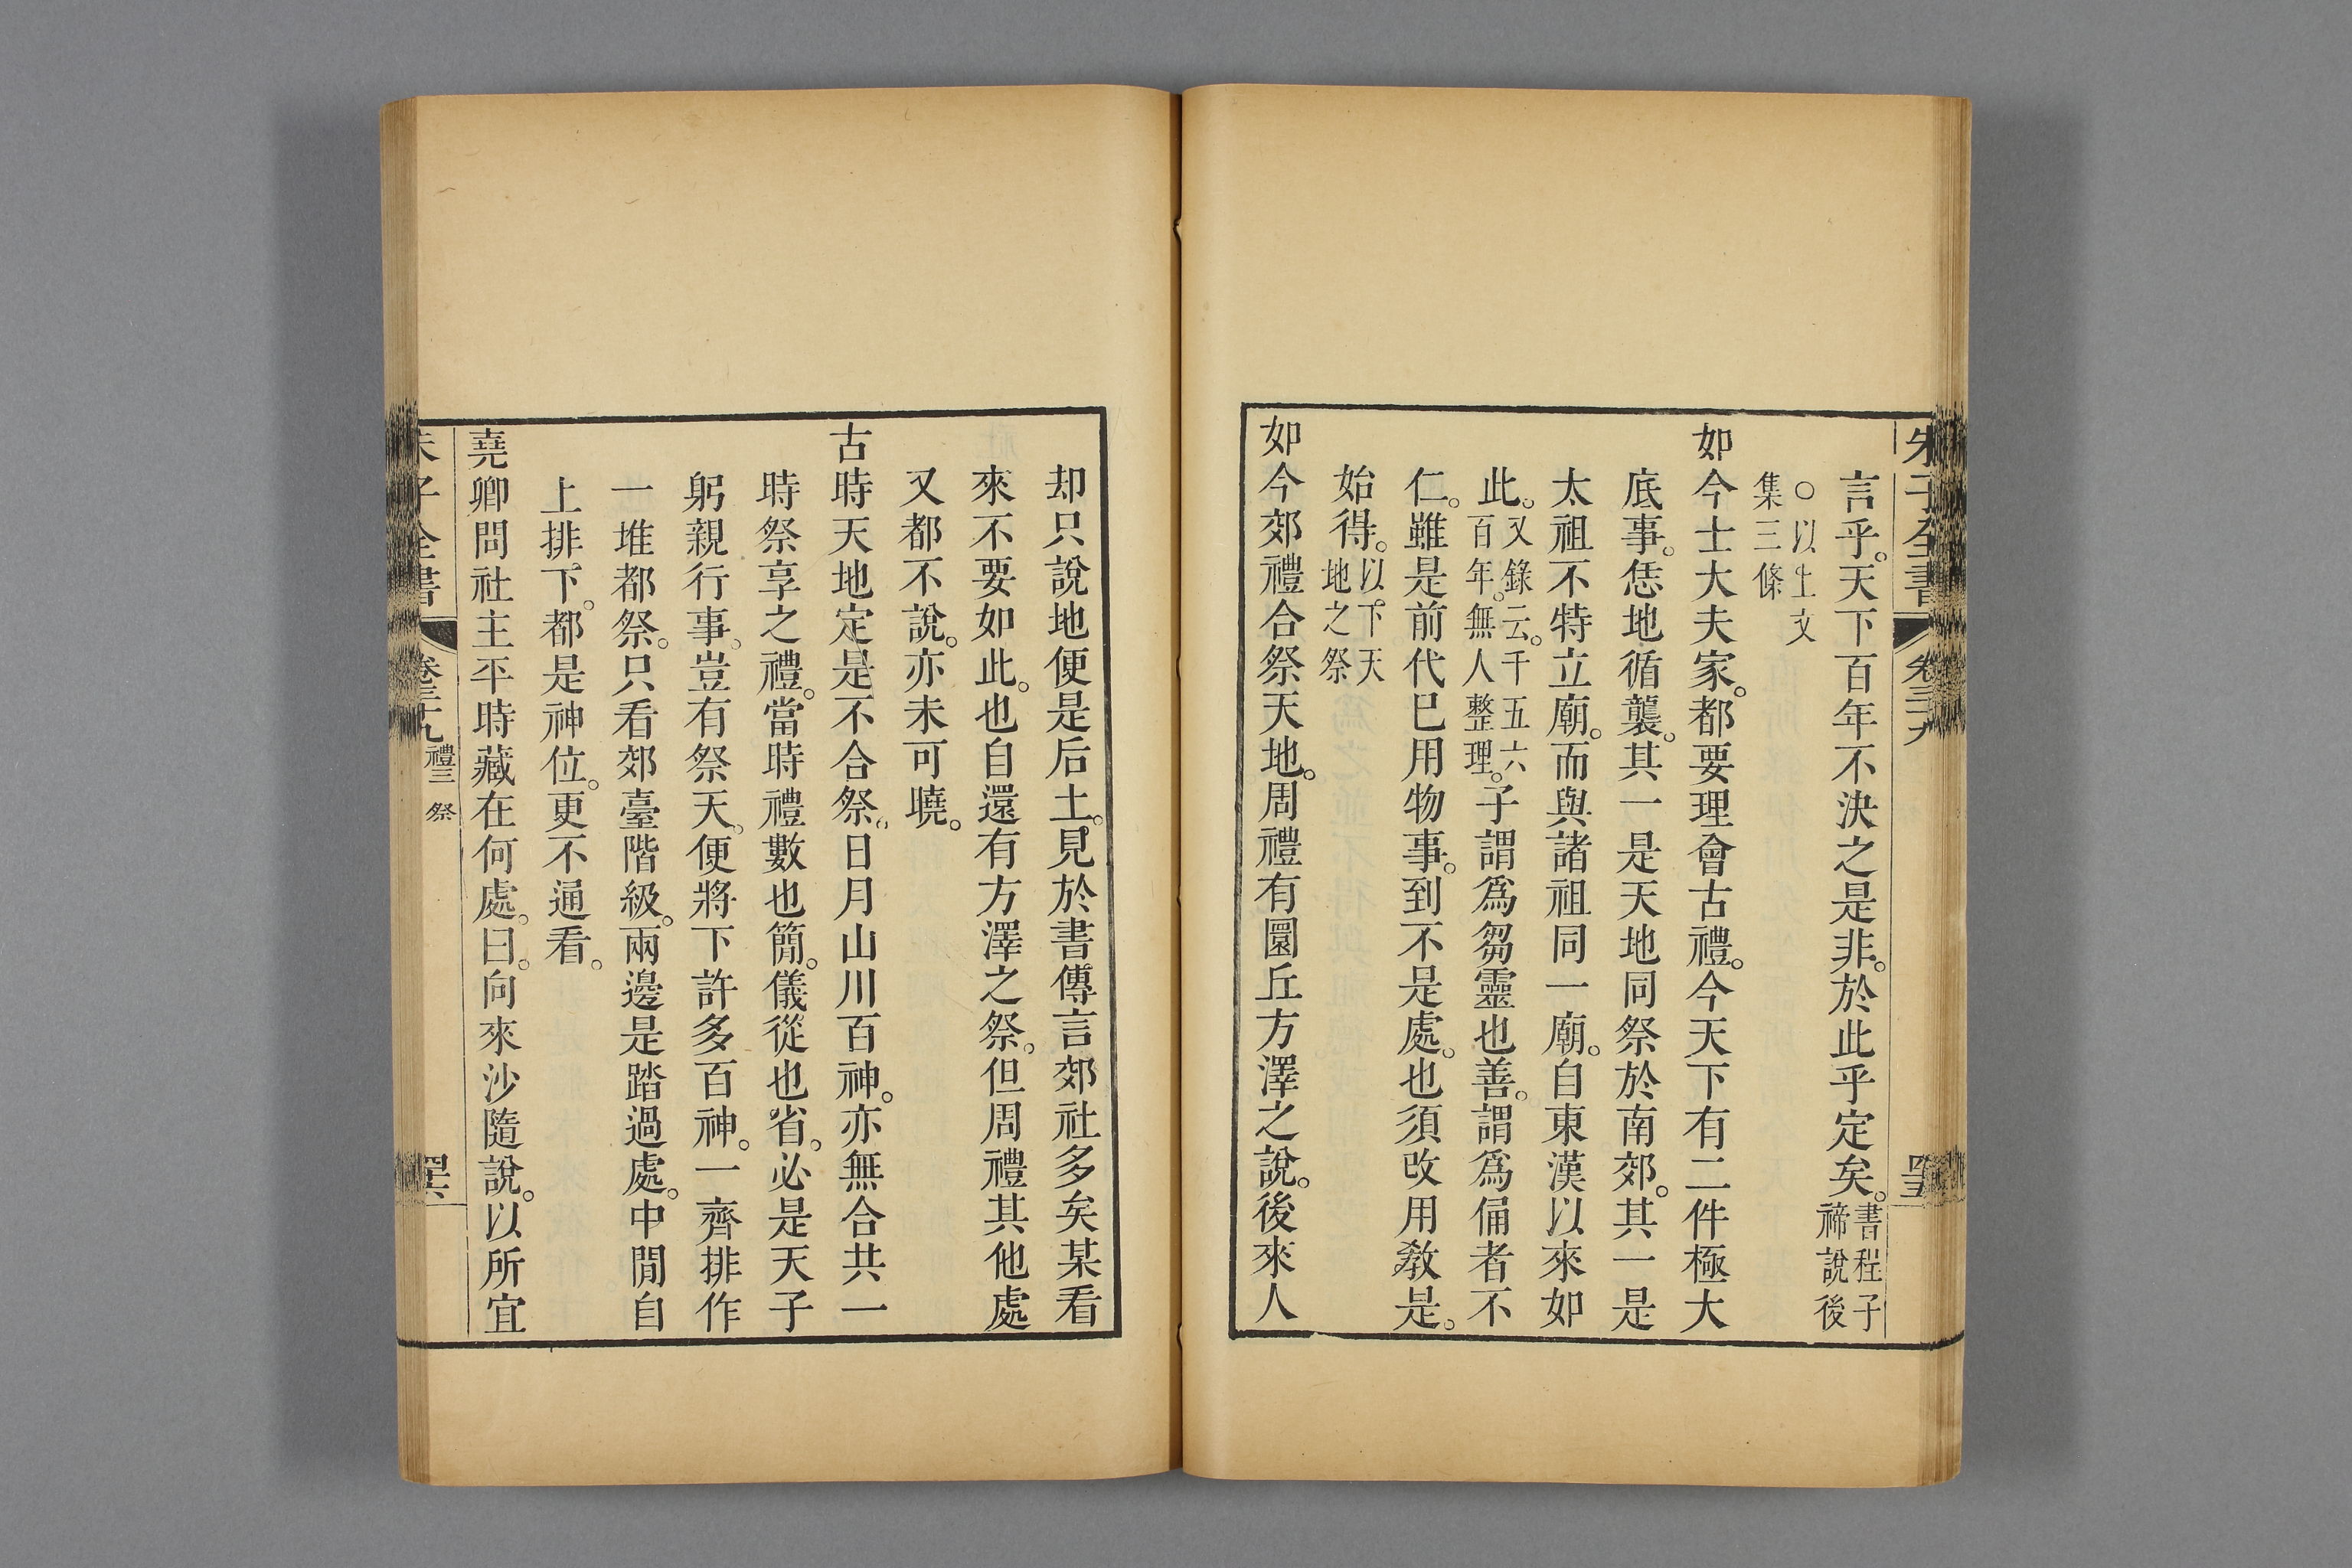 朱子全書 卷三十九 四十五
言乎。天下百年不決之是非。於此乎定矣。書程子禘說後
○以上文集三條
如今士大夫家。都要理會古禮。今天下有二件極大
底事。恁地循襲。其一是天地同祭於南郊。其一是
太祖不特立廟。而與諸祖同一廟。自東漢以來如
此。又錄云。千五六百年。無人整理。子謂為芻靈也善。謂為俑者不
仁。雖是前代已用物事。到不是處。也須改用教是。
始得。以下天地之祭
如今郊禮合祭天地。周禮有圜丘方澤之說。後來人
却只說地便是后土。見於書傳言郊社多矣某看
來不要如此。也自還有方澤之祭。但周禮其他處
又都不說。亦未可曉。
古時天地定是不合祭。日月山川百神。亦無合共一
時祭享之禮。當時禮數也簡。儀從也省。必是天子
躬親行事。豈有祭天。便將下許多百神。一齊排作
一堆都祭。只看郊臺階級。兩邊是踏過處。中間自
上排下。都是神位。更不通看。
堯卿問社主平時藏在何處。曰。向來沙隨說。以所宜
朱子全書 卷三十九 禮三 祭 四十六